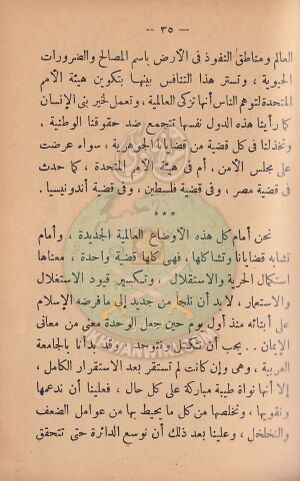 — ٣٥ —
العالم ومناطق النفوذ فى الأرض باسم المصالح والضرورات
الحيوية ، وتستر هذا التنافس بينها بتكوين هيئة الأمم
المتحدة لتوهم الناس أنها تزكى العالمية ، وتعمل لخير بنى الإنسان
كما رأينا هذه الدول نفسها تتجمع ضد حقوقنا الوطنية ،
وتخذلنا فى كل قضية من قضايانا الجوهرية ، سواء عرضت
على مجلس الأمن ، أم فى هيئة الأمم المتحدة ، كما حدث
فى قضية مصر ، وفى قضية فلسطين ، وفى قضية أندونيسيا .
***
نحن أمام كل هذه الأوضاع العالمية الجديدة ، وأمام
تشابه قضايانا وتشاكلها ، فهى كلها قضية واحدة ، معناها
استكمال الحرية والاستقلال ، وتكسير قيود الاستغلال
والاستعمار ، لا بد أن نلجأ من جديد إلى ما فرضه الإسلام
على أبنائه منذ أول يوم حين جعل الوحدة معنى من معانى
الإيمان .. يجب أن نتكتل ونتوحد ، وقد بدأنا بالجامعة
العربية ، وهى وإن كانت لم تستقر بعد الاستقرار الكامل ،
إلا أنها نواة طيبة مباركة على كل حال ، فعلينا أن ندعمها
ونقويها ، ونخلصها من كل ما يحيط بها من عوامل الضعف
والتخلخل ، وعلينا بعد ذلك أن نوسع الدائرة حتى تتحقق